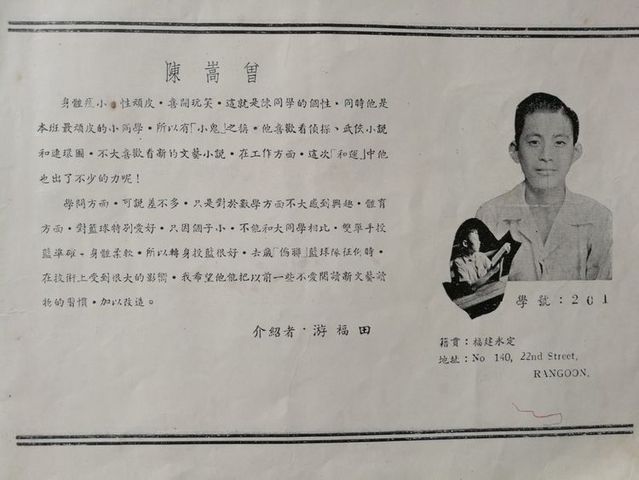 陳嵩曾
身體瘦小·性頑皮·喜開玩笑·這就是陳同學的個性·同時他是
本班最頑皮的小同學·所以有「小鬼」之稱·他喜歡看偵探、武俠小說
和連環圖·不大喜歡看新的文藝小說·在工作方面·這次「和運」中他
也出了不少的力呢!
學問方面·可說差不多·只是對於數學方面不大感到興趣·體育
方面·對籃球特別愛好·只因個子小·不他和大同學相比·雙單手投
籃準確·身體柔軟·所以轉身投籃很好·去歲「僑聯」籃球隊征倒時·
在技術上受到很大的影響·我希望他能把以前一些不愛閱讀新文藝讀
物的習慣·加以改造。
介紹者·游福田
學號:201
籍貫:福建永定
地址:No 140, 22nd Street,
RANGOON.